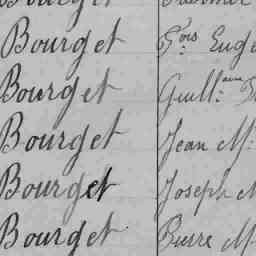 Bourget Fois Eugè
Bourget Guill.aume
Bourget Jean M.
Bourget Joseph M
Bourget Pierre M